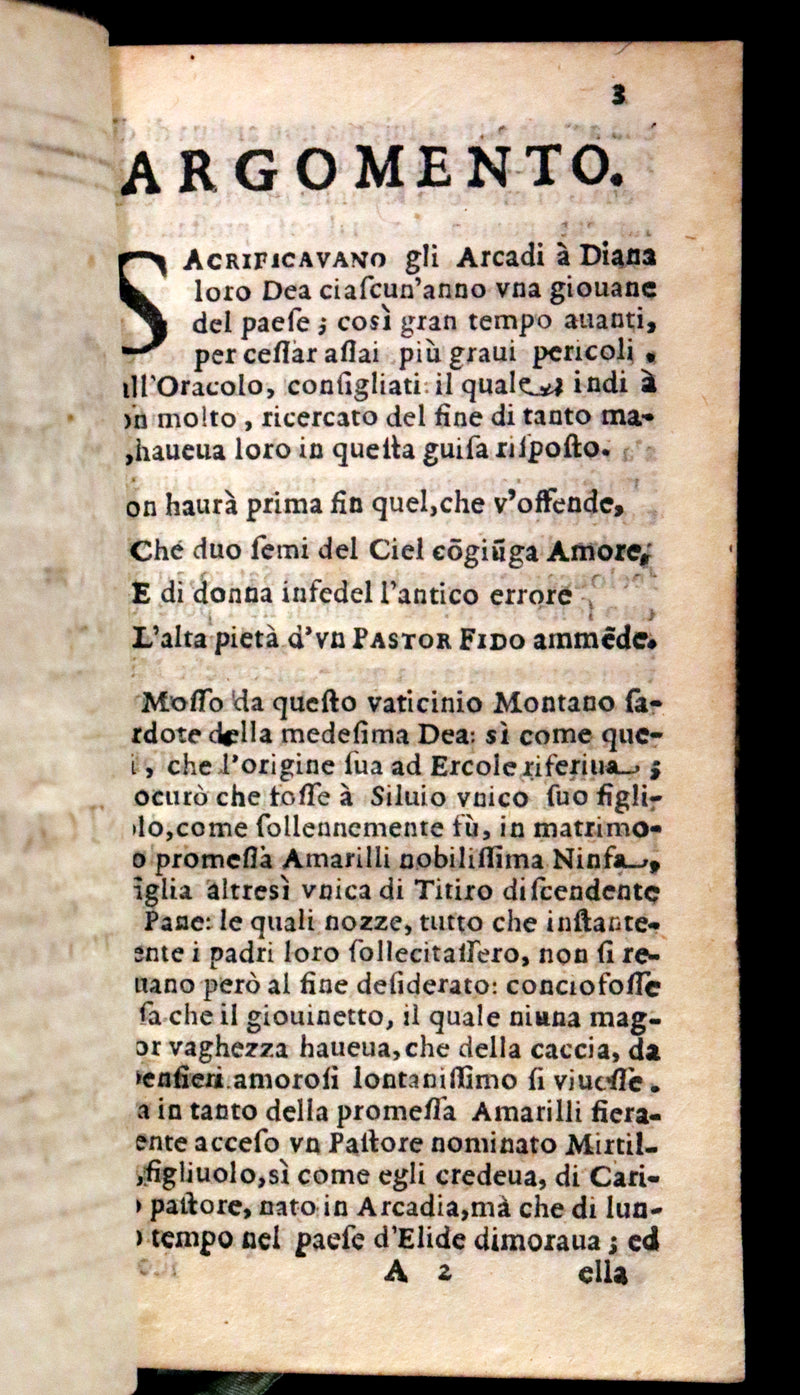 3
ARGOMENTO.
SACRIFICAVANO gli Arcadi à Diana
loro Dea ciaſcun'anno vna giouane
del paeſe ; così gran tempo auanti,
per ceſſar aſſai più graui pericoli ,
ll'Oracolo, conſigliati il quale, indi à
n molto , ricercato del fine di tanto ma-
,haueua loro in queſta guiſa riſpoſto.
on haurà prima fin quel,che v'offende,
Che duo ſemi del Ciel cōgiūga Amore,
E di donna infedel l'antico errore
L'alta pietà d'vn PASTOR FIDO ammēde.
Moſſo da queſto vaticinio Montano ſa-
rdote della medeſima Dea: sì come que-
i, che l'origine ſua ad Ercole riferiua ;
ocurò che foſſe à Siluio vnico ſuo figli-
lo,come ſollennemente fù, in matrimo-
o promeſſa Amarilli nobiliſſima Ninfa ,
iglia altresì vnica di Titiro diſcendente
Pane: le quali nozze, tutto che inſtante-
ente i padri loro ſollecitaſſero, non ſi re-
uano però al fine deſiderato: concioſoſſe
ſa che il giouinetto, il quale niuna mag-
or vaghezza haueua,che della caccia, da
enſieri amoroſi lontaniſſimo ſi viueſſe .
a in tanto della promeſſa Amarilli fiera-
ente acceſo vn Paſtore nominato Mirtil-
,figliuolo,sì come egli credeua, di Cari-
paſtore, nato in Arcadia,mà che di lun-
tempo nel paeſe d'Elide dimoraua ; ed
A 2 ella